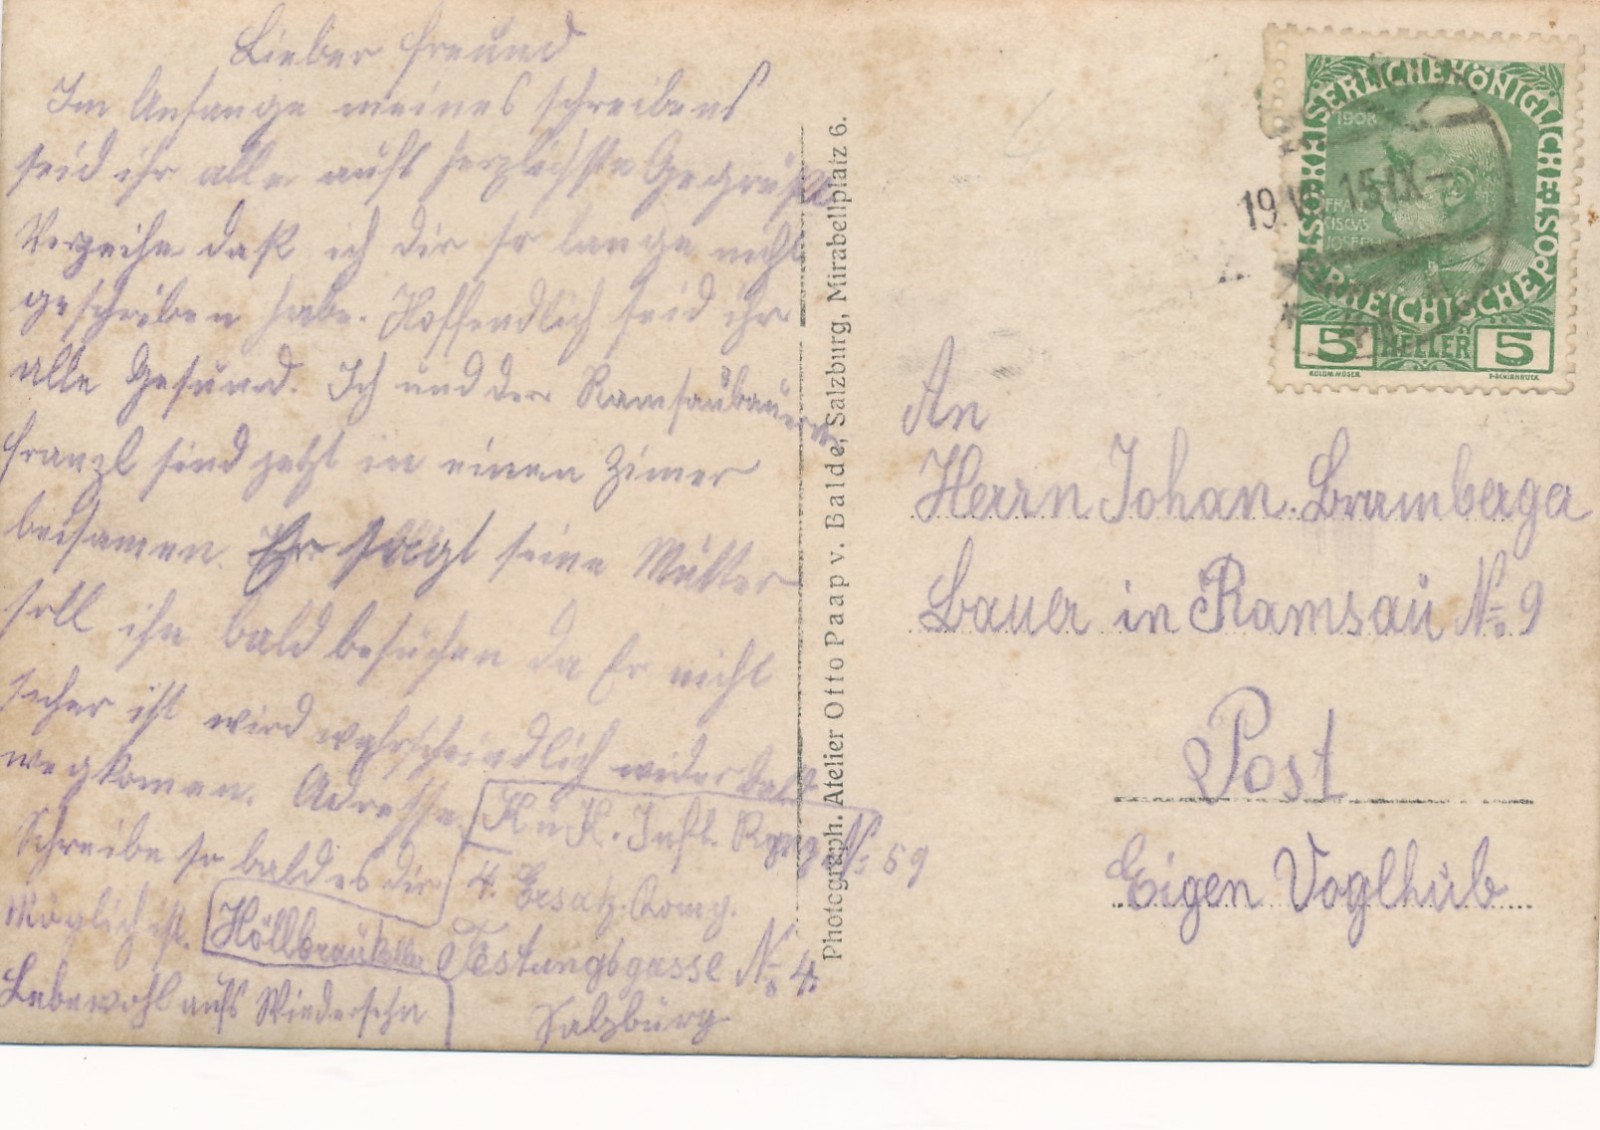 Lieber Freund
Im Anfange meines schreibens
seid ihr alle aufs herzlichste Gegrüßt
Verzeihe daß ich dir so lange nicht
geschriben habe. Hoffendlich seid ihr
alle Gesund. Ich und der Ramsaubauern
franzl sind jetzt in einen Zimer
beisamen. Er sagt seine Mutter
soll ihn bald besuchen da Er nicht
sicher ist wird wahrscheindlich wider bald
wegkomen. Adresse
Schreibe so bald es dir
Möglich ist.
Lebewohl aufs Wiedersehn
K u K. Inft. Rgmg. № 59
4. Ersatz Komp.
Höllbräukeller Festungsgasse № 4.
Salzburg
Photograph. Atelier Otto Paap v. Balde, Salzburg, Mirabellplatz 6.
KAISERLICHE KÖNIGLICHE ÖSTERREICHISCHE POST
1908
FRAN
CISCVS
IOSEF
5 HELLER 5
KOLOM. MOSER
F. SCHIRNBÖCK
15 IX
An
Herrn Johan. Bramberger
Bauer in Ramsau № 9
Post
Eigen Voglhub